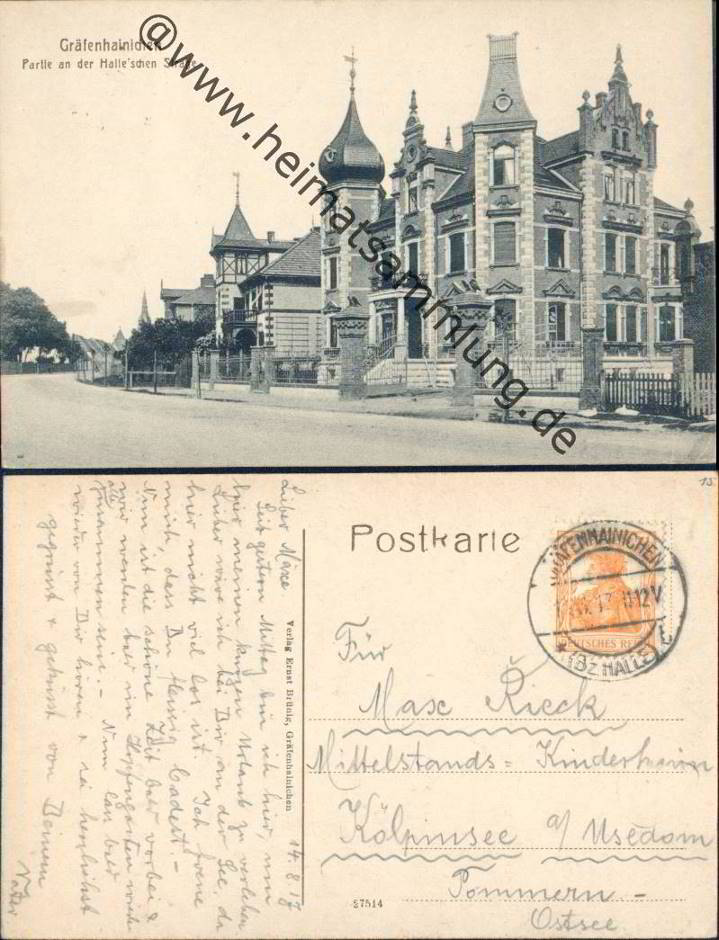 Gräfenhainichen
Partie an der Halle'schen Straße
@www.heimatsammlung.de
15
Postkarte
GRÄFENHAINICHEN
11-12V
DEUTSCHES REICH
(BZ HALLE)
Für
Max Rieck
Mittelstands=Kinderheim
Kölpinsee a/ Usedom
Pommern -
Ostsee
Verlag Ernst Brünig, Gräfenhainichen
27514
14.8.17
Lieber Maxe
Seit gestern Mittag bin ich hier, um
hier meinen kurzen Urlaub zu verleben
Lieber wäre ich bei Dir an der See, da
hier nicht viel los ist. Ich freue
mich, dass Du fleissig badest.-
Nun ist die schöne Zeit bald vorbei &
wir werden bald im Hopfengarten wieder
alle zusammen sein.- Nun lass bald
wieder von Dir hören & sei herzlichst
gegrüsst & geküsst von Deinem
Vater